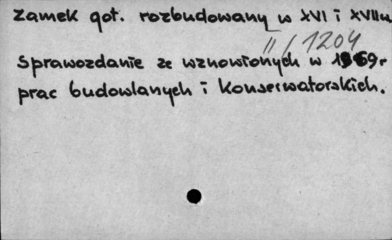 Zamek got. rozbudowany w XVI i XVII w
II/1204
Sprawozdanie ze wznowionych w 1969 r
prac budowlanych i konserwatorskich.